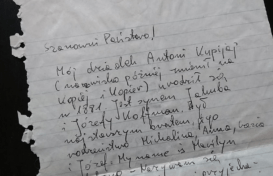 Szanowni Państwo!
Mój dziadek Antoni Kypijaj
(nazwisko później zmienił na
Kopiej i Kopier) urodził się
w 1891. Jest synem Jakuba
i Józefy Koffman. Był
najstarszym bratem, jego
rodzeństwo Michalina, Anna, Kasia
i Józef. Mymano z Marylyn
się